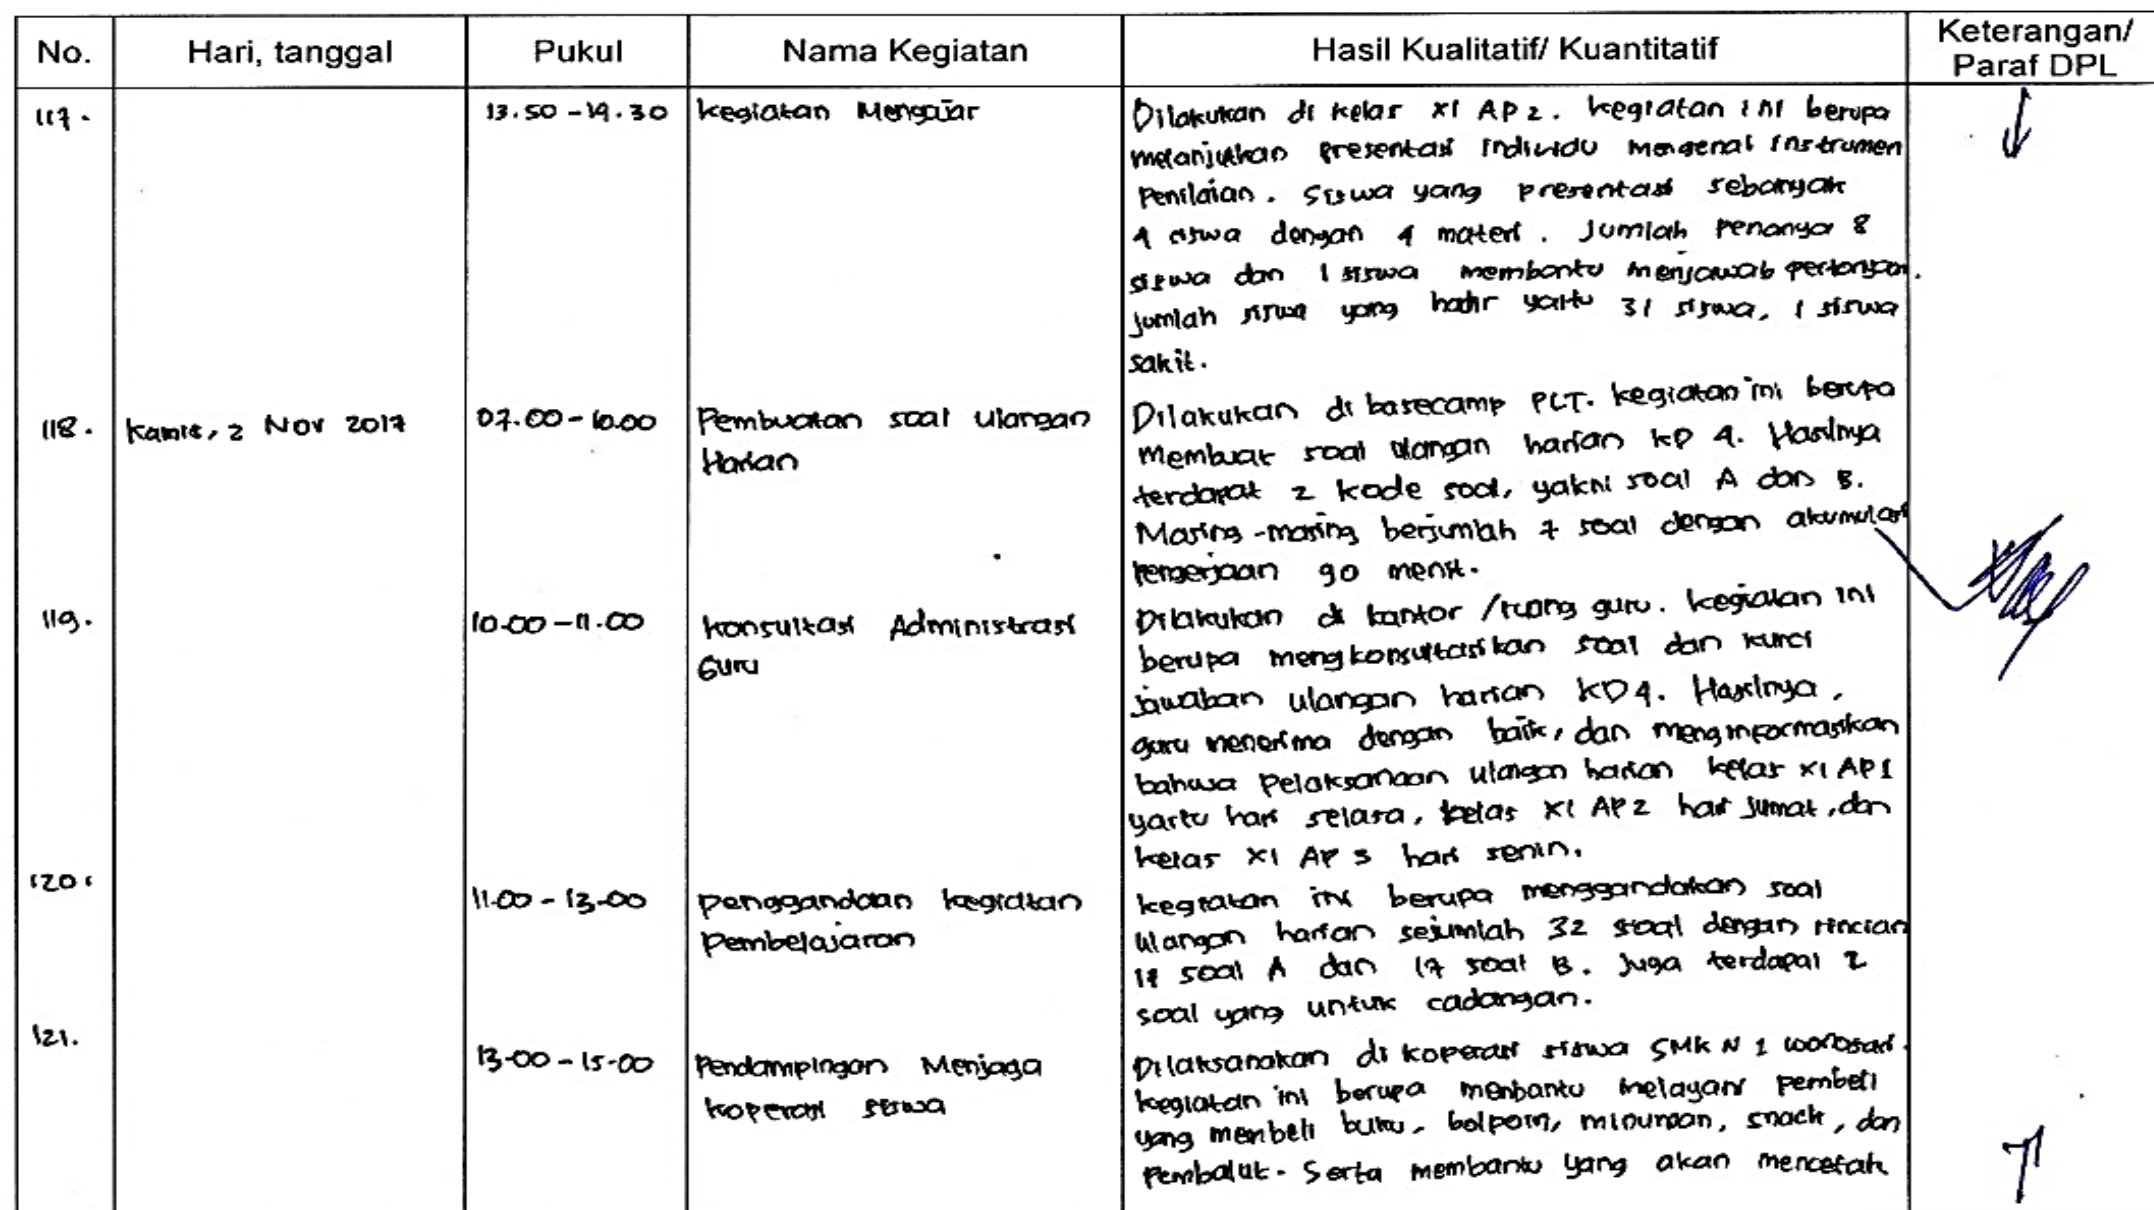 No. Hari, tanggal Pukul Nama Kegiatan Hasil Kualitatif/ Kuantitatif Keterangan/
Paraf DPL
117. 13.50 - 14.30 kegiatan Mengajar Dilakukan di kelas XI AP 2. kegiatan ini berupa
melanjutkan presentasi individu mengenai instrumen
Penilaian. siswa yang presentasi sebanyak
4 siswa dengan 4 materi. Jumlah penanya 8
siswa dan 1 siswa membantu menjawab pertanyaan.
jumlah siswa yang hadir yaitu 31 siswa, 1 siswa
sakit.
118. Kamis, 2 Nov 2017 07.00 - 10.00 Pembuatan soal ulangan Dilakukan di basecamp PLT. kegiatan ini berupa
Harian membuat soal ulangan harian KD 4. Hasilnya
terdapat 2 kode soal, yakni soal A dan B.
Masing-masing berjumlah 7 soal dengan akumulasi
pengerjaan 90 menit.
119. 10.00 - 11.00 konsultasi Administrasi Dilakukan di kantor /ruang guru. kegiatan ini
Guru berupa mengkonsultasikan soal dan kunci
jawaban ulangan harian KD 4. Hasilnya,
guru menerima dengan baik, dan menginformasikan
bahwa Pelaksanaan ulangan harian kelas XI AP1
yaitu hari selasa, kelas XI AP 2 hari Jumat, dan
kelas XI AP 3 hari senin.
120. 11.00 - 13.00 penggandaan kegiatan kegiatan ini berupa menggandakan soal
Pembelajaran ulangan harian sejumlah 32 soal dengan rincian
17 soal A dan 17 soal B. Juga terdapat 2
soal yang untuk cadangan.
121. 13.00 - 15.00 Pendampingan Menjaga Dilaksanakan di koperasi siswa SMK N 1 wonosari.
koperasi siswa kegiatan ini berupa membantu melayani pembeli
yang membeli buku, bolpoin, minuman, snack, dan
Pembalut. Serta membantu yang akan mencetak